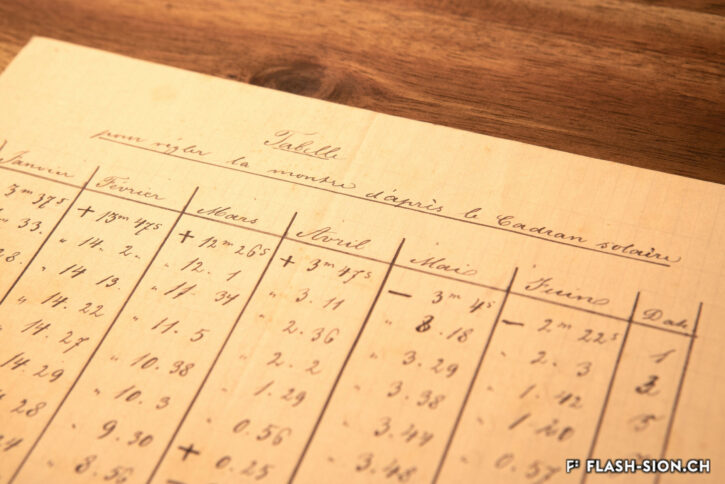 Tabelle
pour régler la montre d'après le Cadran solaire
Janvier Février Mars Avril Mai Juin Date
3m 37s + 13m 47s + 12m 26s + 3m 47s — 3m 4s — 2m 22s 1
" 33. " 14. 2. " 12. 1 " 3. 11 " 3. 18 " 2. 3
28. " 14 13. " 11. 34 " 2. 36 " 3. 29 " 1. 42 5
" 14. 22 " 11. 5 " 2. 2 " 3. 38 " 1. 20
" 14. 27 " 10. 38 " 1. 29 " 3. 44 " 0. 57
14. 29 " 10. 3 " 0. 56 " 3. 48
14 28 " 9. 30 + 0. 25
8. 56
FLASH-SION.CH